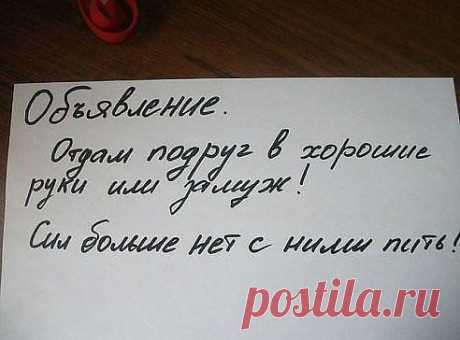 Объявление.
Отдам подруг в хорошие
руки или замуж!
Сил больше нет с ними пить!
postila.ru